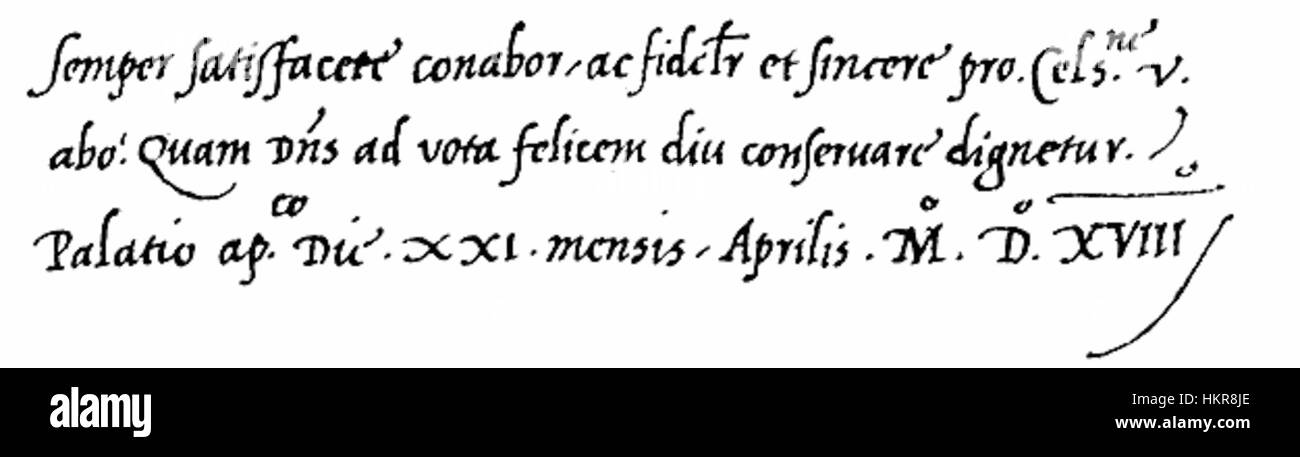 semper satisfacere conabor, ac fidelr et sincere pro. Cels.ne v.
abo! Quam Dns ad vota felicem diu conseruare dignetur.
Palatio ap.co Die. XXI. mensis, Aprilis. Mo. Do. XVIII
alamy stock photo
HKR8JE
www.alamy.com